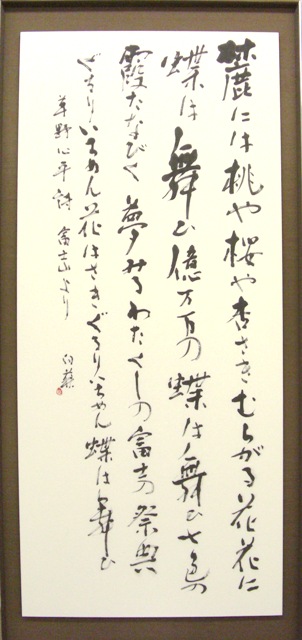 麓には桃や桜や杏さきむらがる花花に
蝶は舞ひ億万の蝶は舞ひ七色の
霞たなびく夢みるわたくしの富士の祭典
ぐるりいちめん花はさきぐるりいちめん蝶は舞ひ
草野心平詩 富士山より